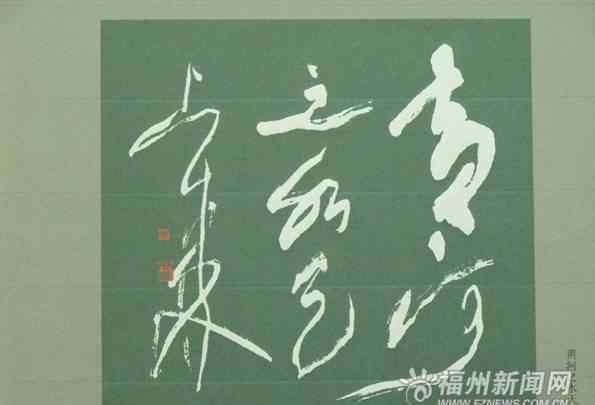 黄河
之水天
上来
福州新闻网
WWW.FZNEWS.COM.CN